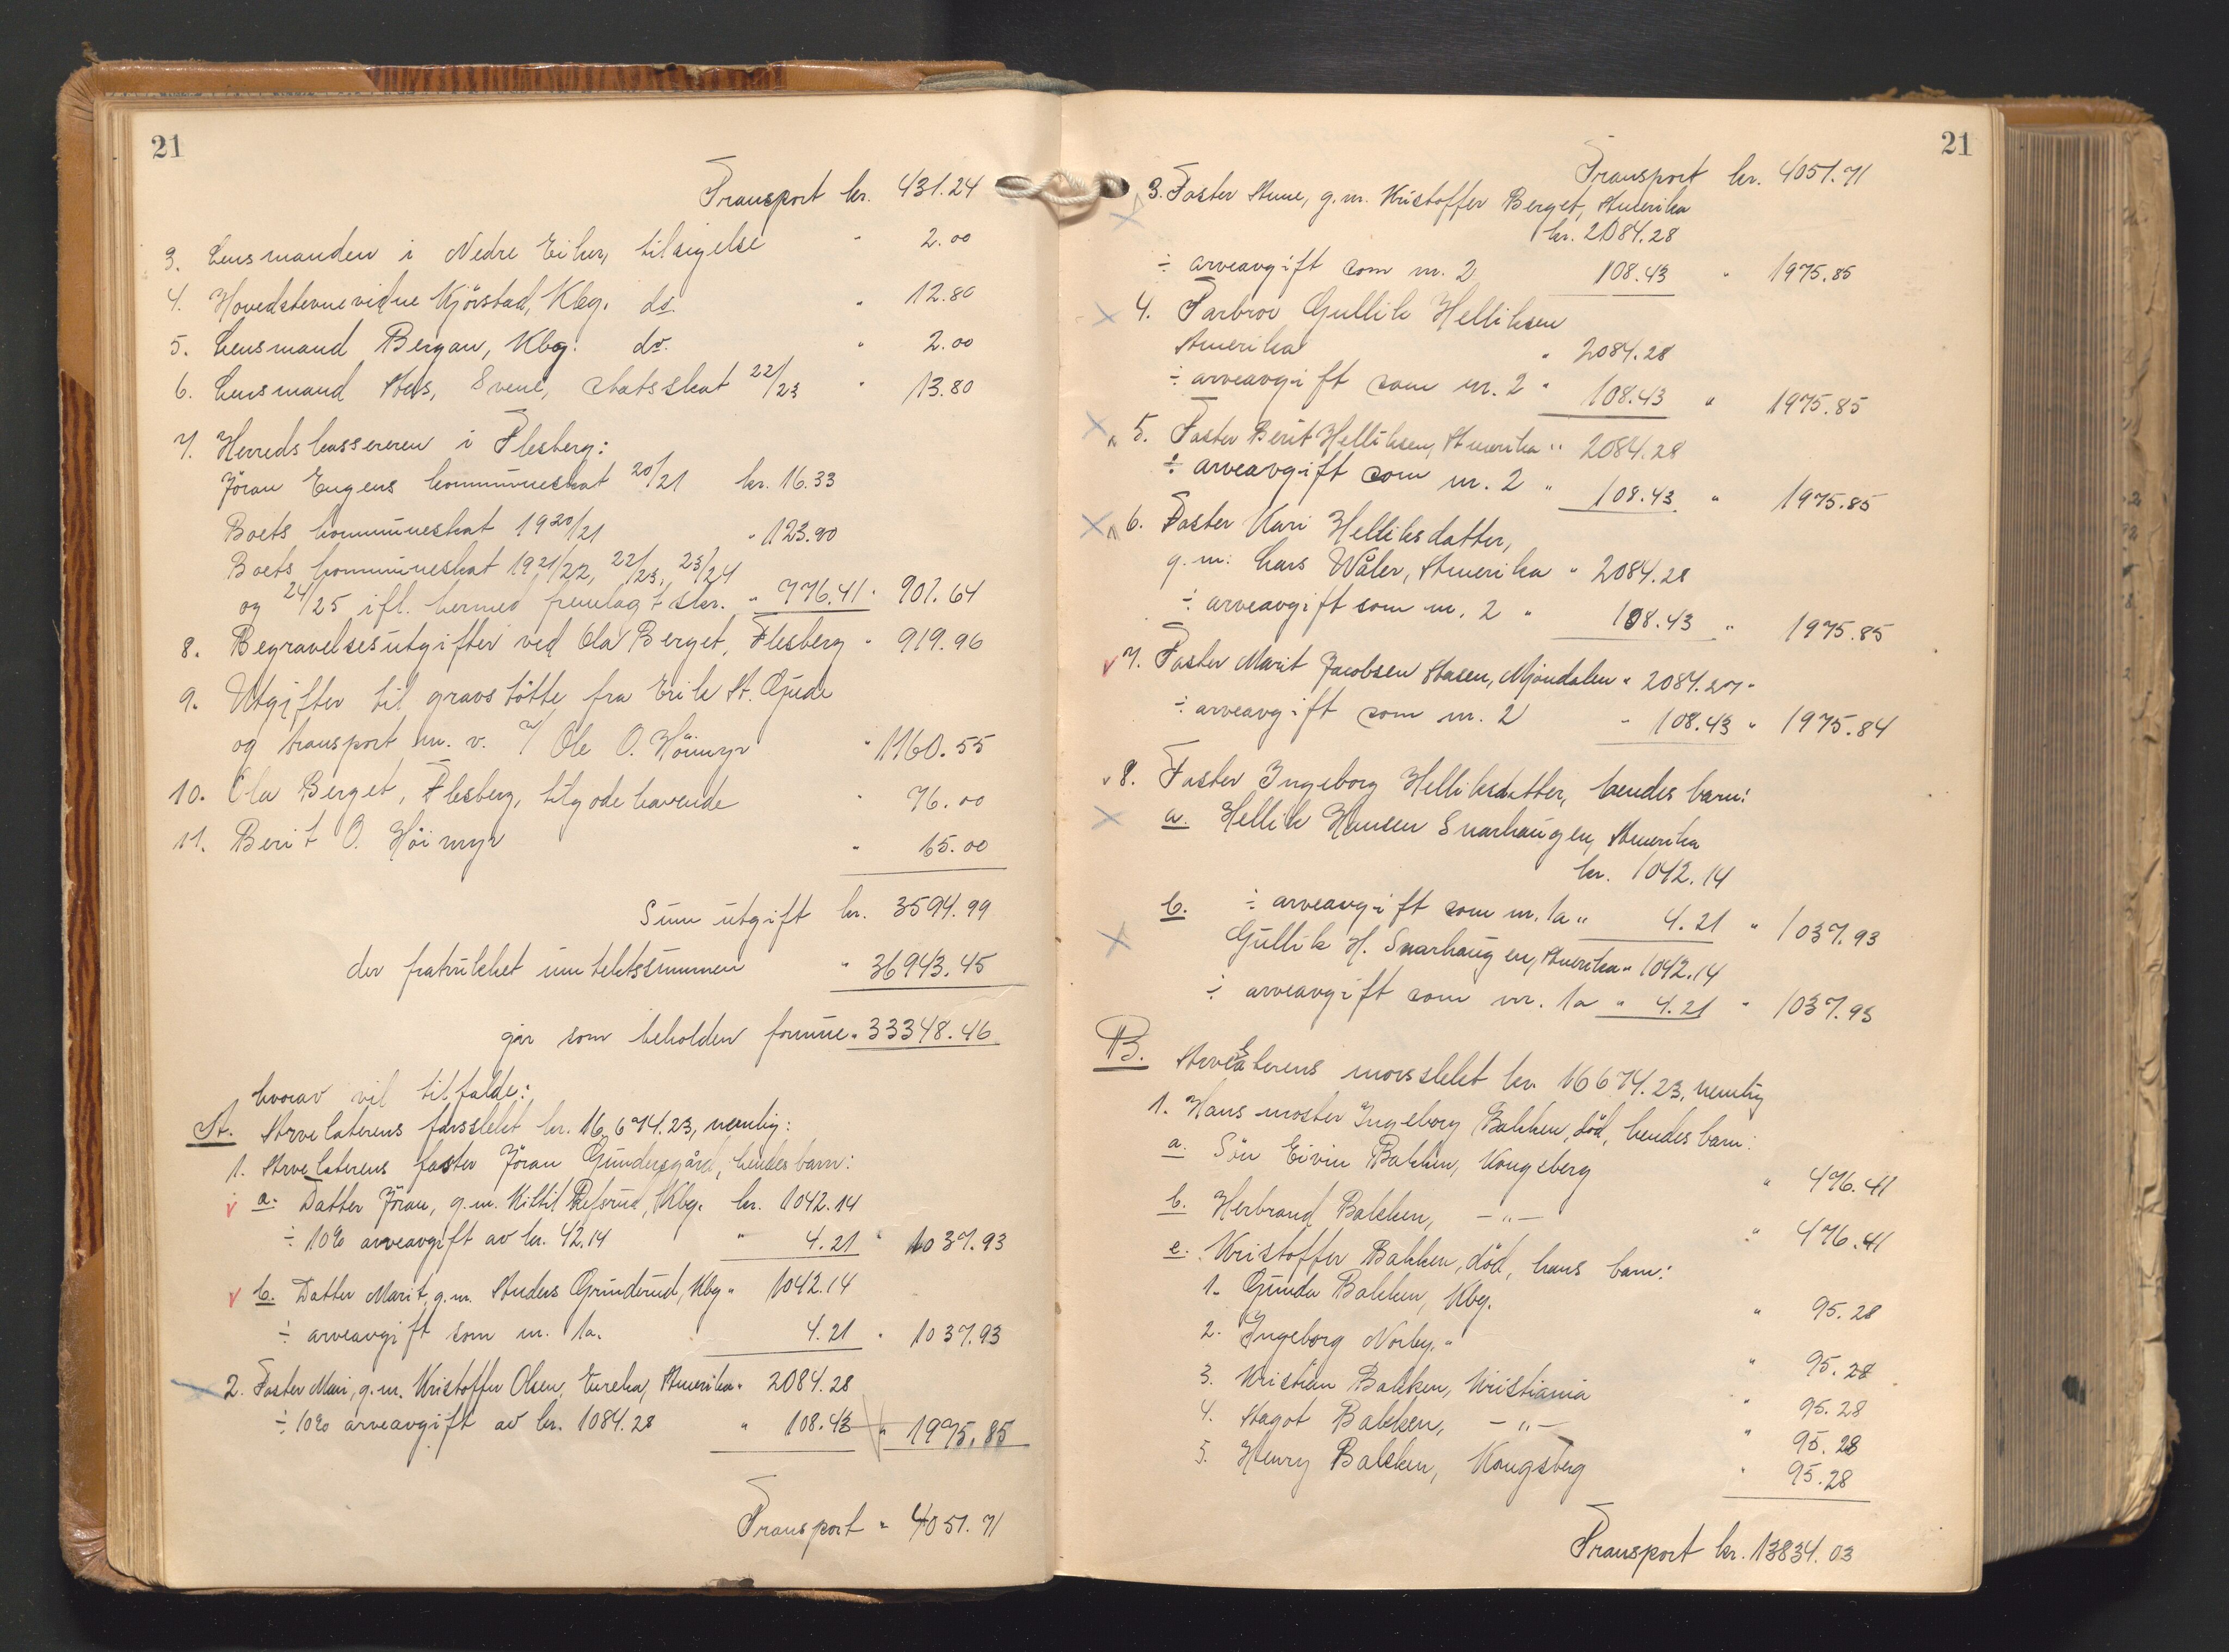 21
Transport kr. 431.24
3. Lensmanden i Nedre Eiker, tilsigelse " 2.00
4. Hovedstevnevidne Kjörstad, Kbg. do. " 12.80
5. Lensmand Bergan, Kbg. do. " 2.00
6. Lensmand Aas, Svene, statsskat 22/23 " 13.80
7. Herredskassereren i Flesberg:
Jöran Engens kommuneskat 20/21 kr. 16.33
Boets kommuneskat 1920/21 " 123.90
Boets kommuneskat 1921/22, 22/23, 23/24
og 24/25 ifl. hermed fremlagt skr. " 776.41 " 901.64
8. Begravelsesutgifter ved Ola Berget, Flesberg " 919.96
9. Utgifter til gravstötte fra Erik A. Gude
og transport m. v. v/ Ole O. Höimyr " 1160.55
10. Ola Berget, Flesberg, tilgodehavende " 76.00
11. Berit O. Höimyr " 65.00
Sum utgift kr. 3594.99
der fratrukket inntektssummen " 36943.45
gir som beholden formue " 33348.46
hvorav vil tilfalde:
A. Arvelaterens farsslekt kr. 16674.23, nemlig:
1. Arvelaterens faster Jöran Gundesgård, hendes barn:
a. Datter Jöran, g.m. Kittil Refsrud, Kbg. kr. 1042.14
÷ 10% arveavgift av kr. 42.14 " 4.21 " 1037.93
b. Datter Marit, g.m. Anders Grinderud, Kbg " 1042.14
÷ arveavgift som nr. 1a. 4.21 " 1037.93
2. Faster Mari, g.m. Kristoffer Olsen, Eureka, Amerika " 2084.28
÷ 10% arveavgift av kr. 1084.28 " 108.43 " 1975.85
Transport " 4051.71
21
Transport kr. 4051.71
3. Faster Anne, g.m. Kristoffer Berget, Amerika
kr. 2084.28
÷ arveavgift som nr. 2 108.43 " 1975.85
4. Farbror Gullik Helliksen
Amerika " 2084.28
÷ arveavgift som nr. 2 " 108.43 " 1975.85
5. Faster Berit Helliksen, Amerika " 2084.28
÷ arveavgift som nr. 2 " 108.43 " 1975.85
6. Faster Kari Helliksdatter,
g.m. Lars Wåler, Amerika " 2084.28
÷ arveavgift som nr. 2 " 108.43 " 1975.85
7. Faster Marit Jacobsen Aasen, Mjöndalen " 2084.27 "
÷ arveavgift som nr. 2 " 108.43 " 1975.84
8. Faster Ingeborg Helliksdatter, hendes barn:
a. Hellik Hansen Snarhaugen, Amerika
kr. 1042.14
÷ arveavgift som nr. 1a " 4.21 " 1037.93
b. Gullik H. Snarhaugen, Amerika " 1042.14
÷ arveavgift som nr. 1a " 4.21 " 1037.93
B. Arvelaterens morsslekt kr. 16674.23, nemlig
1. Hans moster Ingeborg Bakken, död, hendes barn:
a. Sön Eivin Bakken, Kongsberg " 476.41
b. Herbrand Bakken, — " — " 476.41
c. Kristoffer Bakken, död, hans barn:
1. Gunda Bakken, Kbg. " 95.28
2. Ingeborg Norby, " " 95.28
3. Kristian Bakken, Kristiania " 95.28
4. Aagot Bakken, — " — " 95.28
5. Henry Bakken, Kongsberg " 95.28
Transport kr. 13834.03